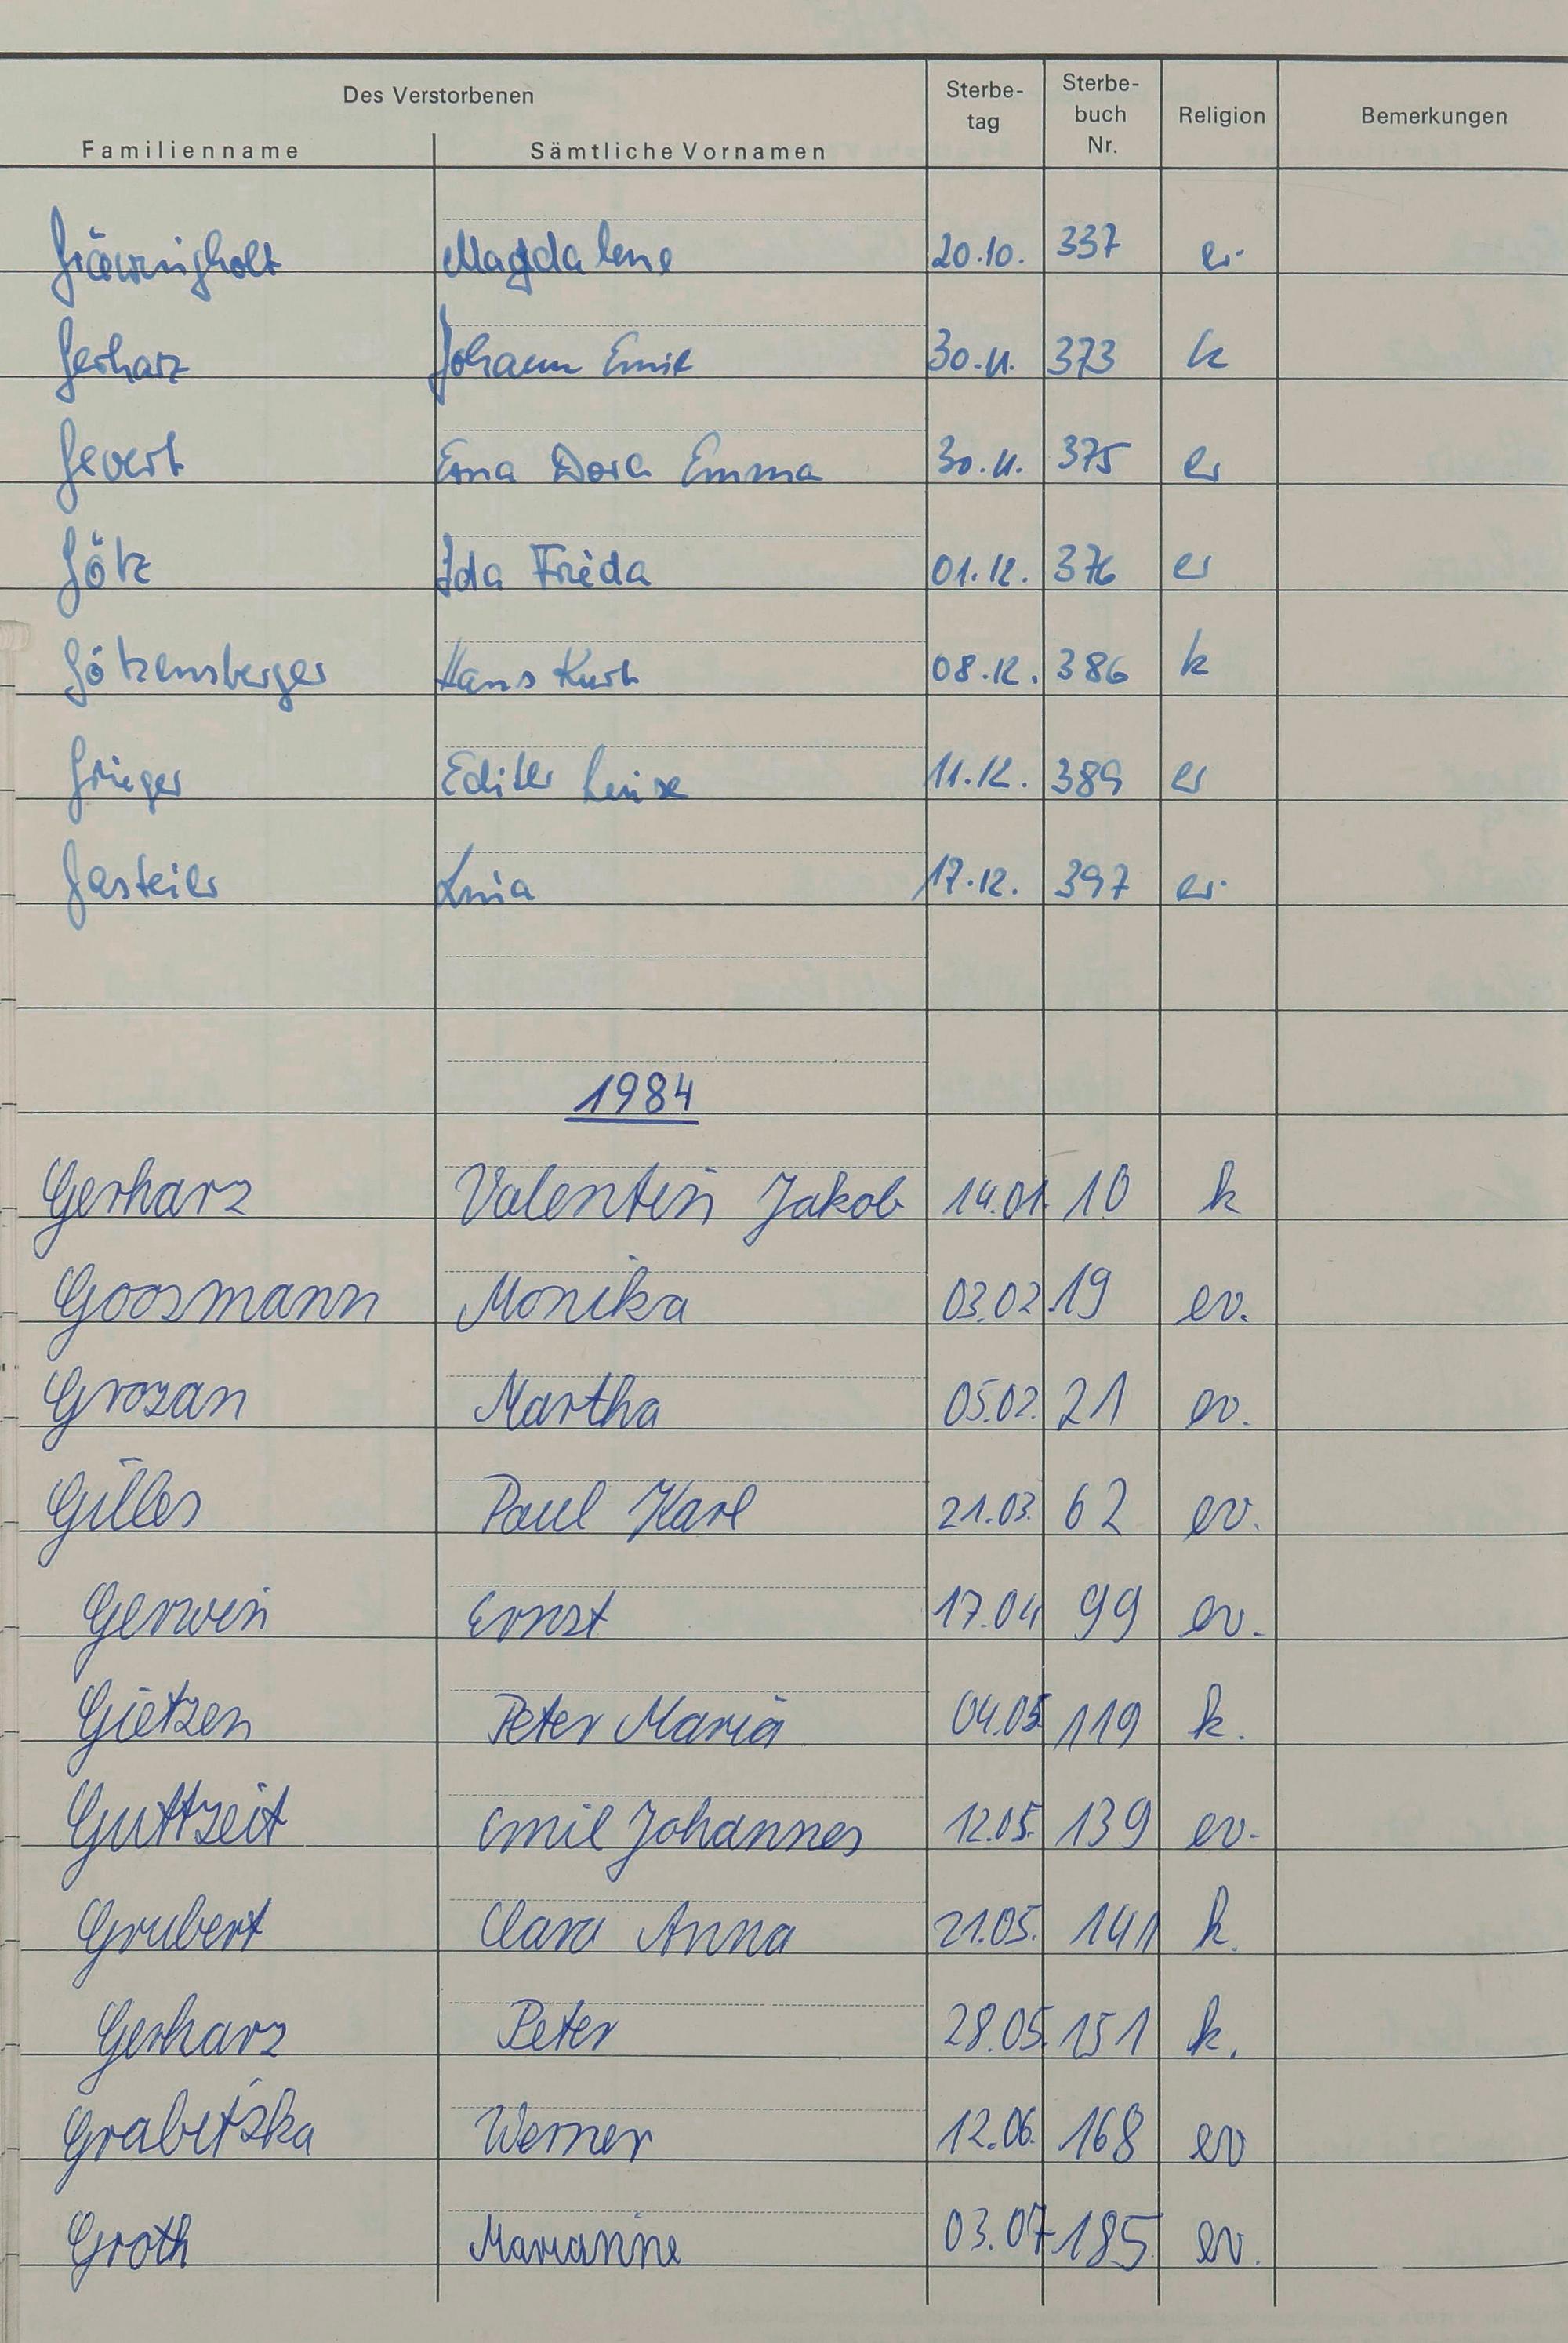 Des Verstorbenen
Familienname Sämtliche Vornamen Sterbe-tag Sterbe-buch Nr. Religion Bemerkungen
Magdalene 20.10. 337 ev.
Gerharz Johann Emil 30.11. 373 k
Gevert Erna Dora Emma 30.11. 375 ev
Götz Ida Frieda 01.12. 376 ev
Götzensberger Hans Kurt 08.12. 386 k
Grieger Edith Luise 11.12. 389 ev
17.12. 397 ev.
1984
Gerharz Valentin Jakob 14.01. 10 k
Goosmann Monika 03.02. 19 ev.
Grozan Martha 05.02. 21 ev.
Gilles Paul Karl 21.03. 62 ev.
Gerwin Ernst 17.04 99 ev.
Gietzen Peter Maria 04.05 119 k.
Guttzeit Emil Johannes 12.05. 139 ev.
Grubert Clara Anna 21.05. 141 k.
Gerharz Peter 28.05. 151 k.
Grabitzka Werner 12.06. 168 ev
Groth Marianne 03.07 185 ev.